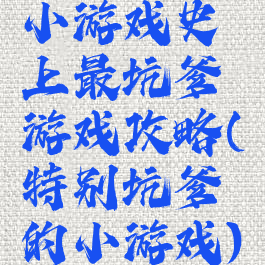 小游戏史
上最坑爹
游戏攻略(
特别坑爹
的小游戏)